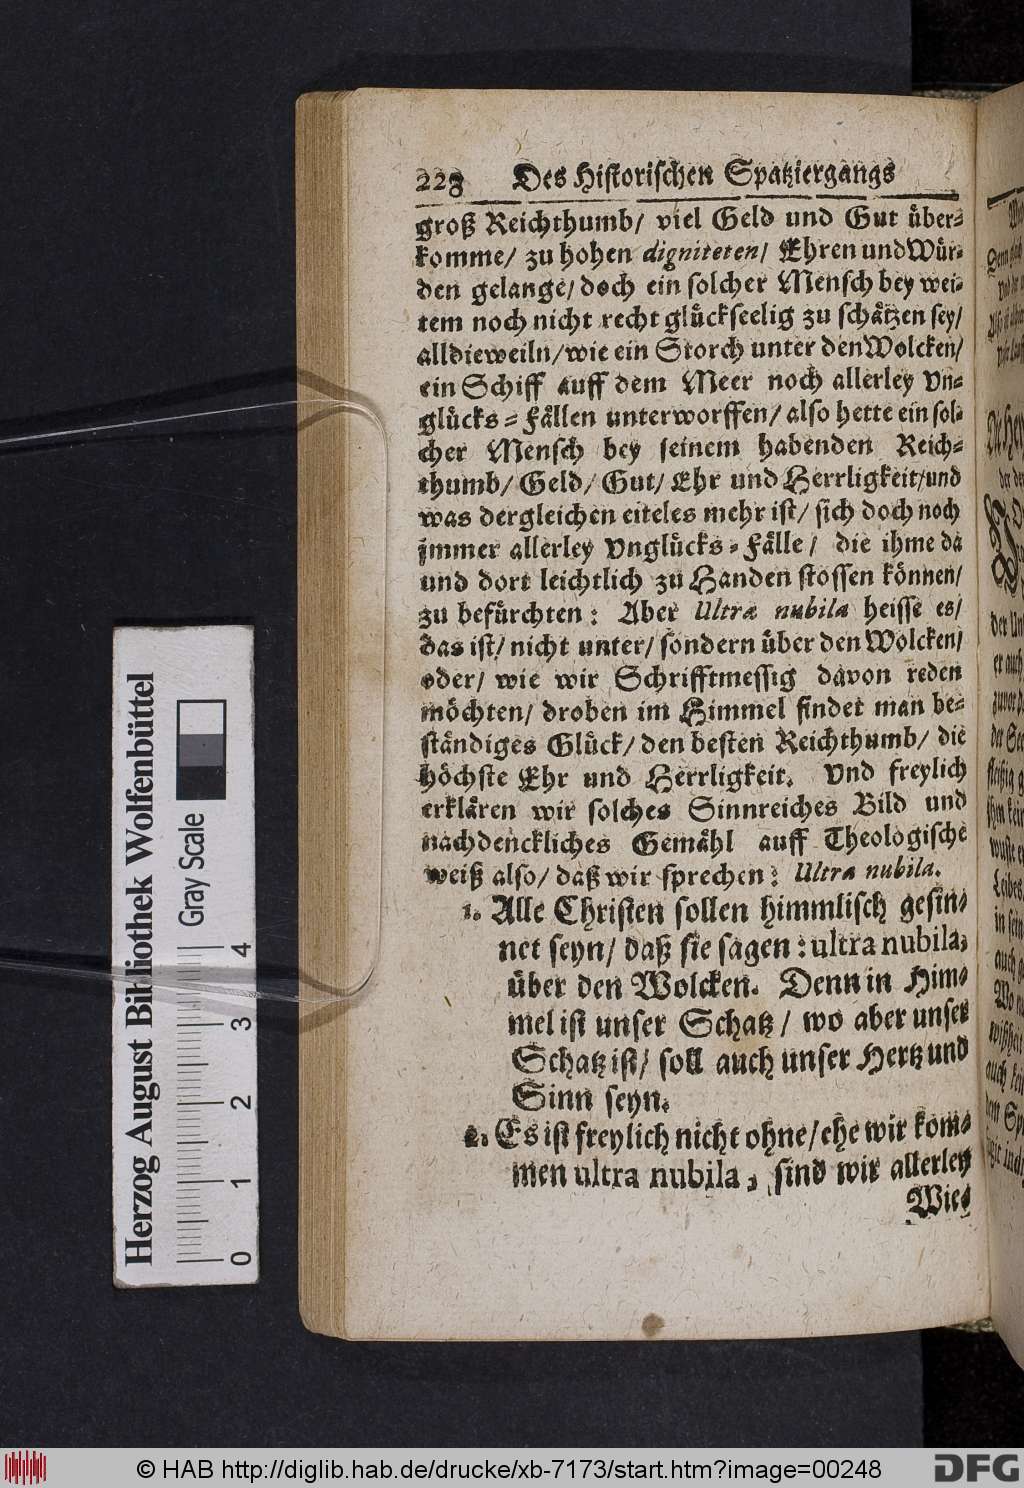 228 Des Historischen Spatziergangs
groß Reichthumb/ viel Geld und Gut über-
komme/ zu hohen digniteten/ Ehren und Wür-
den gelange/ doch ein solcher Mensch bey wei-
tem noch nicht recht glückseelig zu schätzen sey/
alldieweiln/ wie ein Storch unter den Wolcken/
ein Schiff auff dem Meer noch allerley Vn-
glücks-Fällen unterworffen/ also hette ein sol-
cher Mensch bey seinem habenden Reich-
thumb/ Geld/ Gut/ Ehr und Herrligkeit/ und
was dergleichen eiteles mehr ist/ sich doch noch
immer allerley Vnglücks-Fälle/ die ihme da
und dort leichtlich zu Handen stossen können/
zu befürchten: Aber Ultra nubila heisse es/
das ist/ nicht unter/ sondern über den Wolcken/
oder/ wie wir Schrifftmessig davon reden
möchten/ droben im Himmel findet man be-
ständiges Glück/ den besten Reichthumb/ die
höchste Ehr und Herrligkeit. Vnd freylich
erklären wir solches Sinnreiches Bild und
nachdenckliches Gemähl auff Theologische
weiß also/ daß wir sprechen: Ultra nubila.
1. Alle Christen sollen himmlisch gesin-
net seyn/ daß sie sagen: ultra nubila,
über den Wolcken. Denn in Him-
mel ist unser Schatz/ wo aber unser
Schatz ist/ soll auch unser Hertz und
Sinn seyn.
2. Es ist freylich nicht ohne/ ehe wir kom-
men ultra nubila, sind wir allerley
Wie-
Herzog August Bibliothek Wolfenbüttel
Gray Scale
0 1 2 3 4
© HAB http://diglib.hab.de/drucke/xb-7173/start.htm?image=00248
DFG